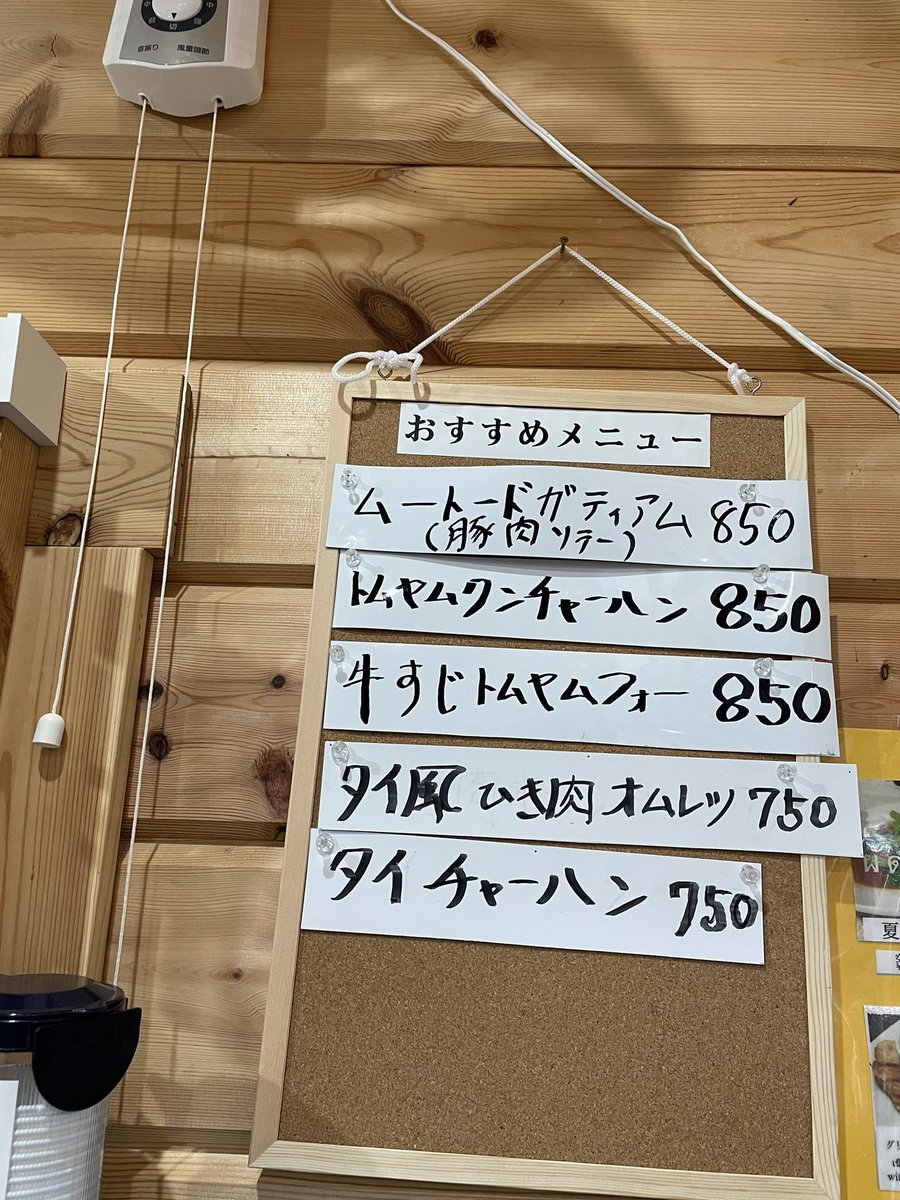 中 中
回 切 強
首振り 風量調節
おすすめメニュー
ムートードガティアム 850
(豚肉ソテー)
トムヤムクンチャーハン 850
牛すじトムヤムフォー 850
タイ風 ひき肉 オムレツ 750
タイ チャーハン 750
夏
グリ